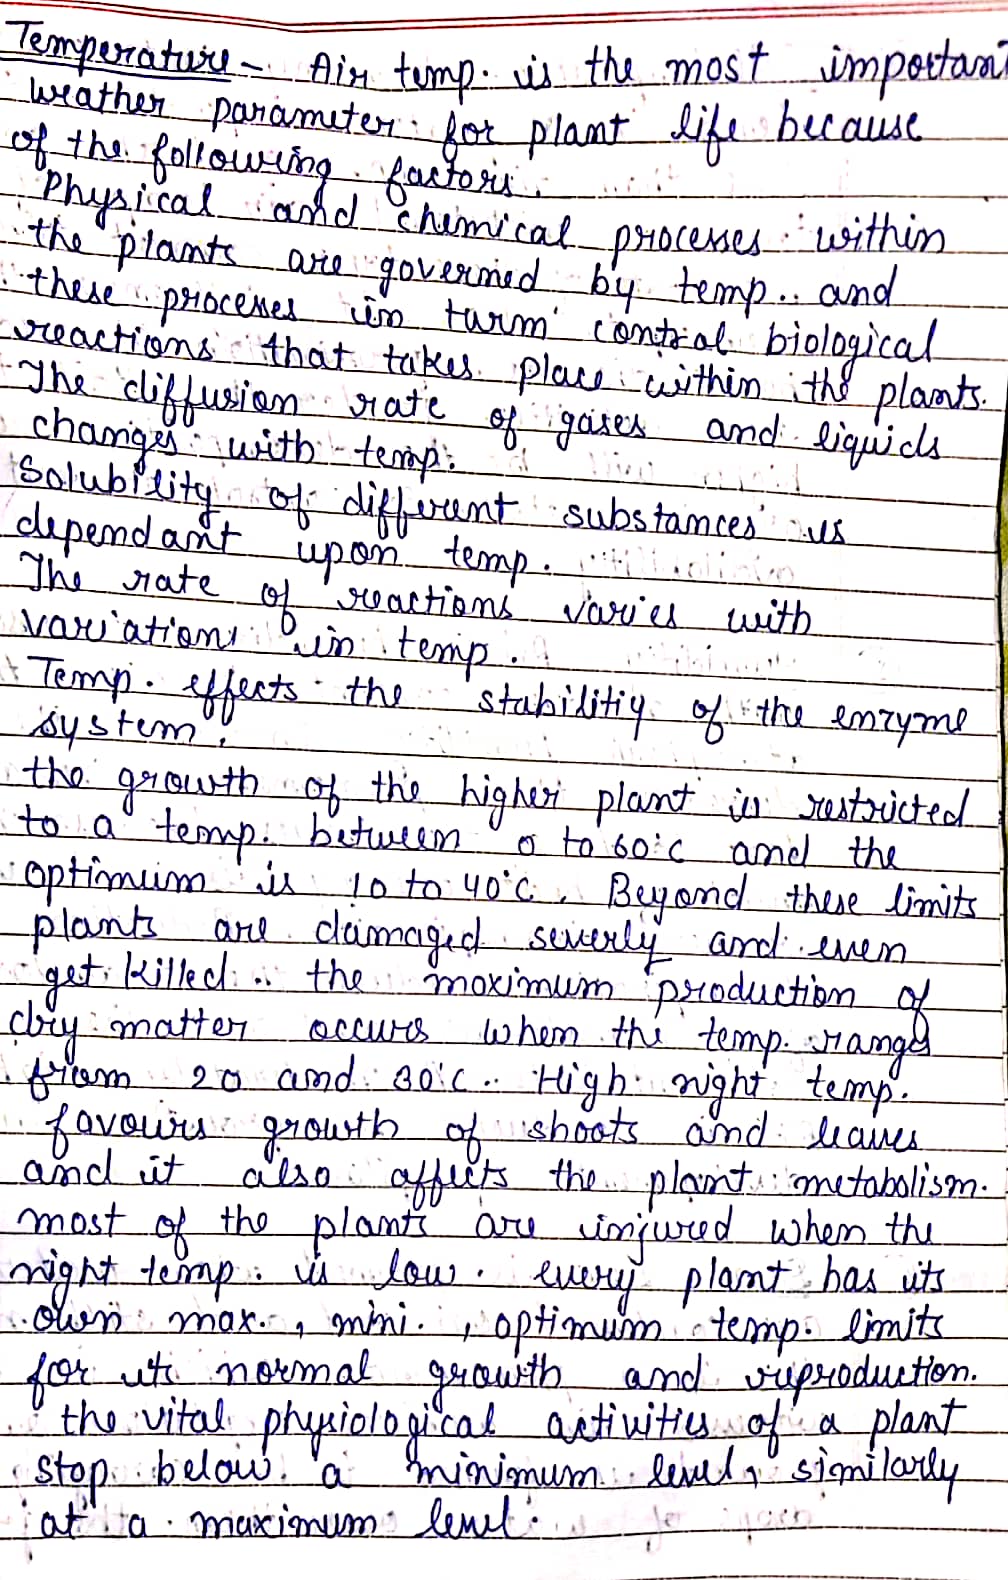 Temperature - Air temp. is the most important
weather parameter for plant life because
of the following factors.
Physical and chemical processes within
the plants are governed by temp. and
these processes in turn control biological
reactions that takes place within the plants.
The diffusion rate of gases and liquids
changes with temp.
Solubility of different substances is
dependant upon temp.
The rate of reactions varies with
variations in temp.
Temp. effects the stabilitiy of the enzyme
system.
the growth of the higher plant is restricted
to a temp. between 0 to 60°c and the
optimum is 10 to 40°c. Beyond these limits
plants are damaged severly and even
get killed. the moximum production of
dry matter occurs when the temp. ranges
from 20 and 30°c. High night temp.
favours growth of shoots and leaves
and it also affects the plant metabolism.
most of the plants are injured when the
night temp. is low. every plant has its
own max., mini., optimum temp. limits
for its normal growth and reproduction.
the vital physiological activities of a plant
stop below a minimum level, similarly
at a maximum level.